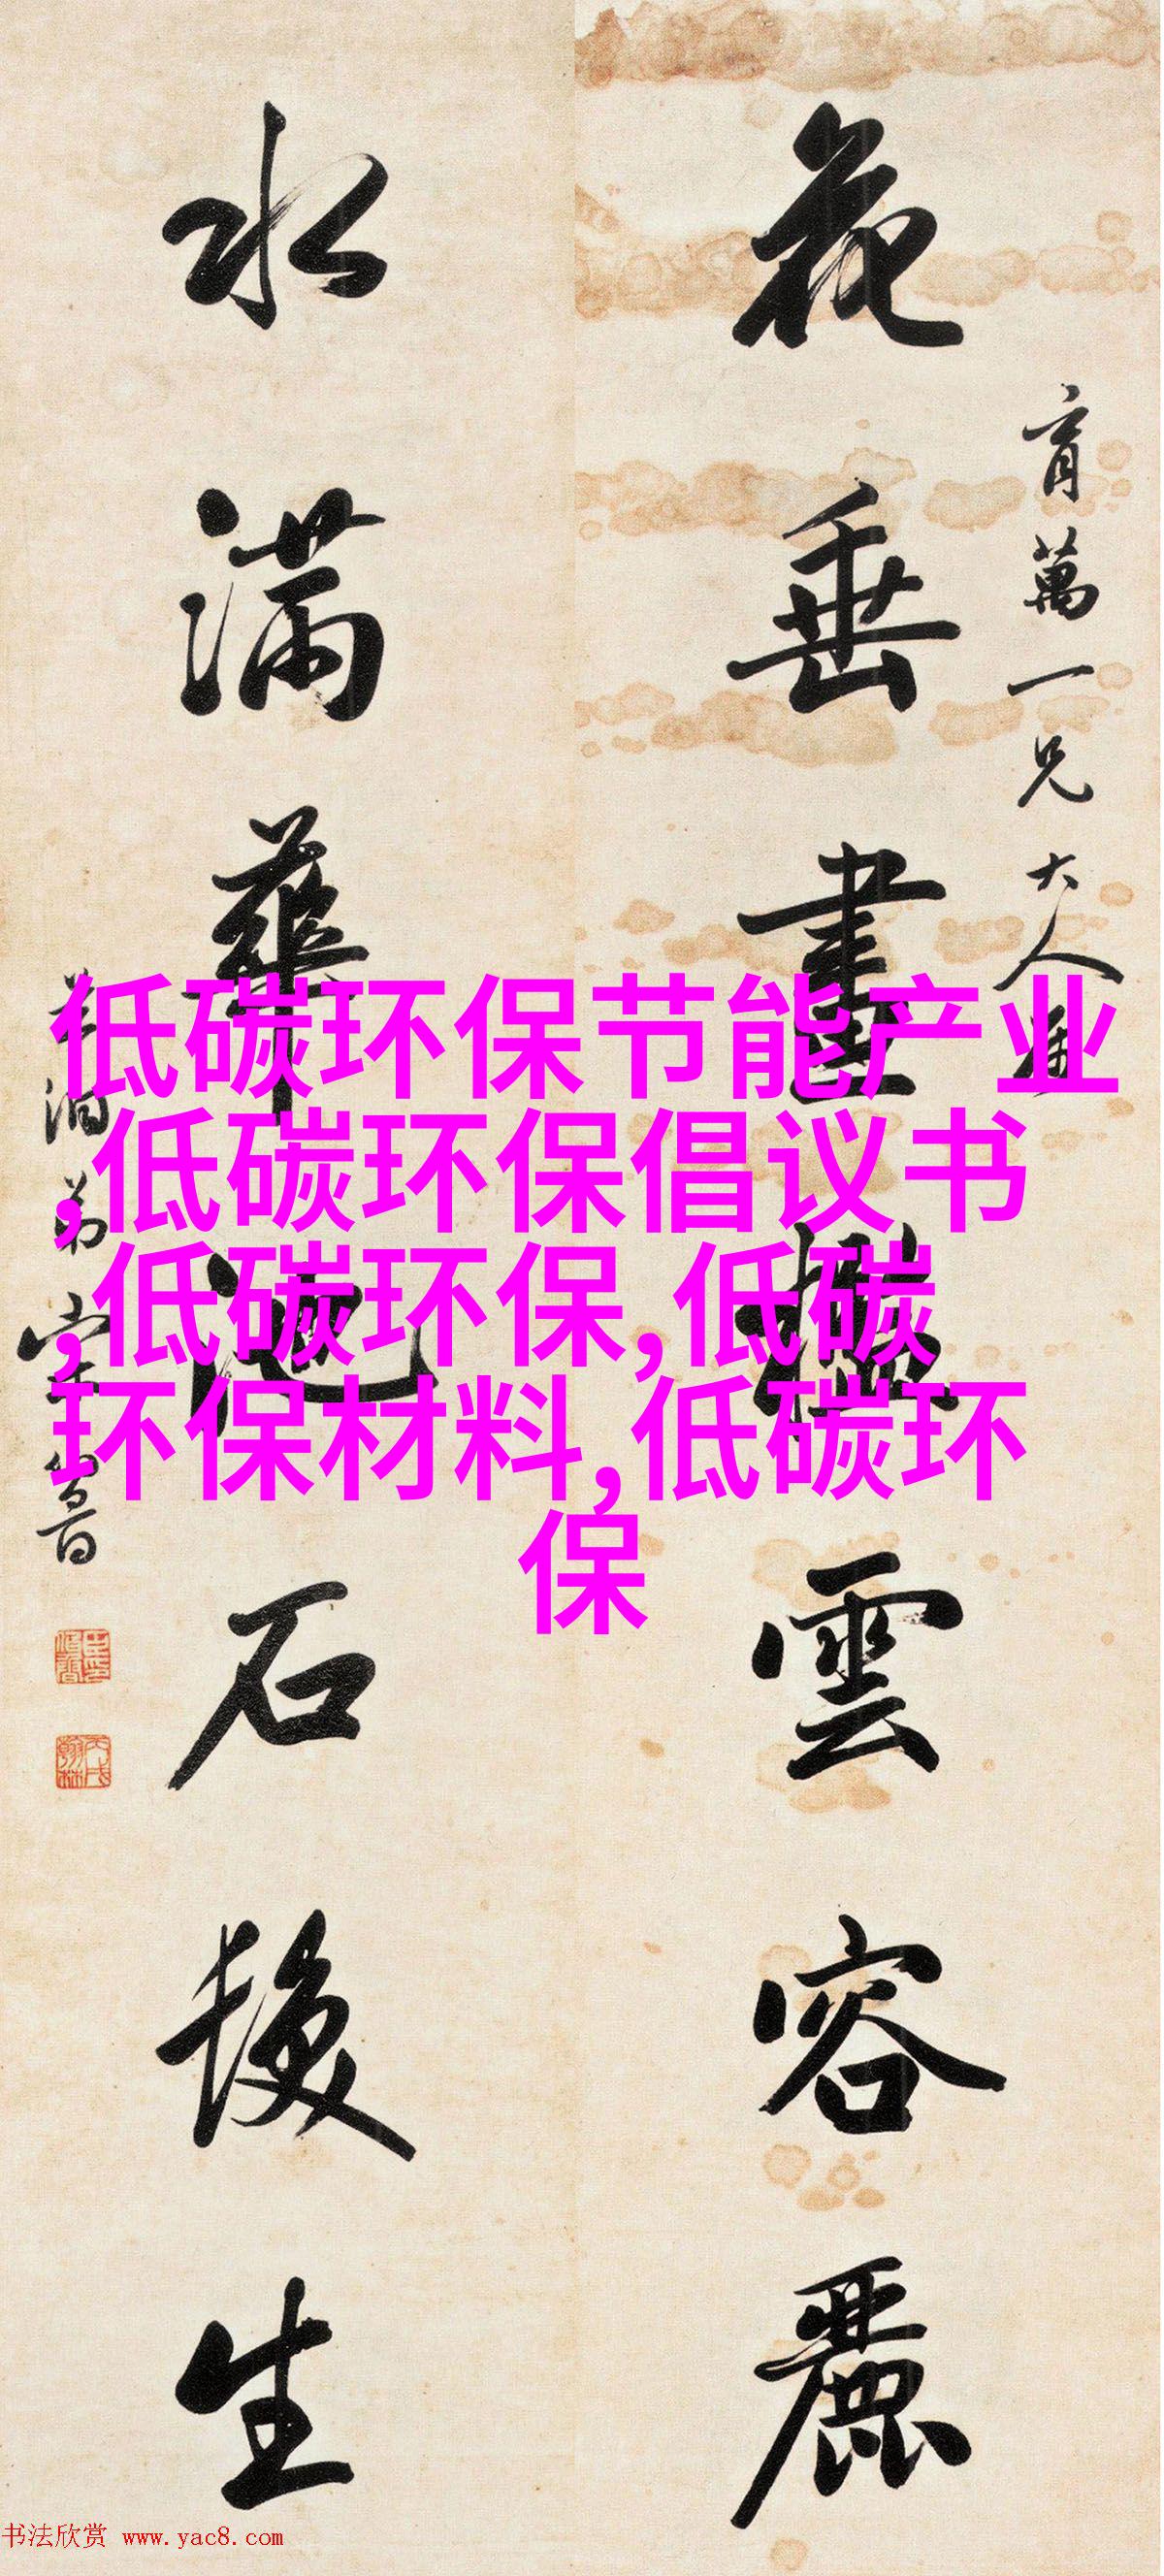 育萬一兄大人
花垂畫檻雲容麗
水滿華池石髮生
低碳环保节能产业
,低碳环保倡议书
,低碳环保,低碳
环保材料,低碳环
保
丙戌翰林
书法欣赏 www.yac8.com